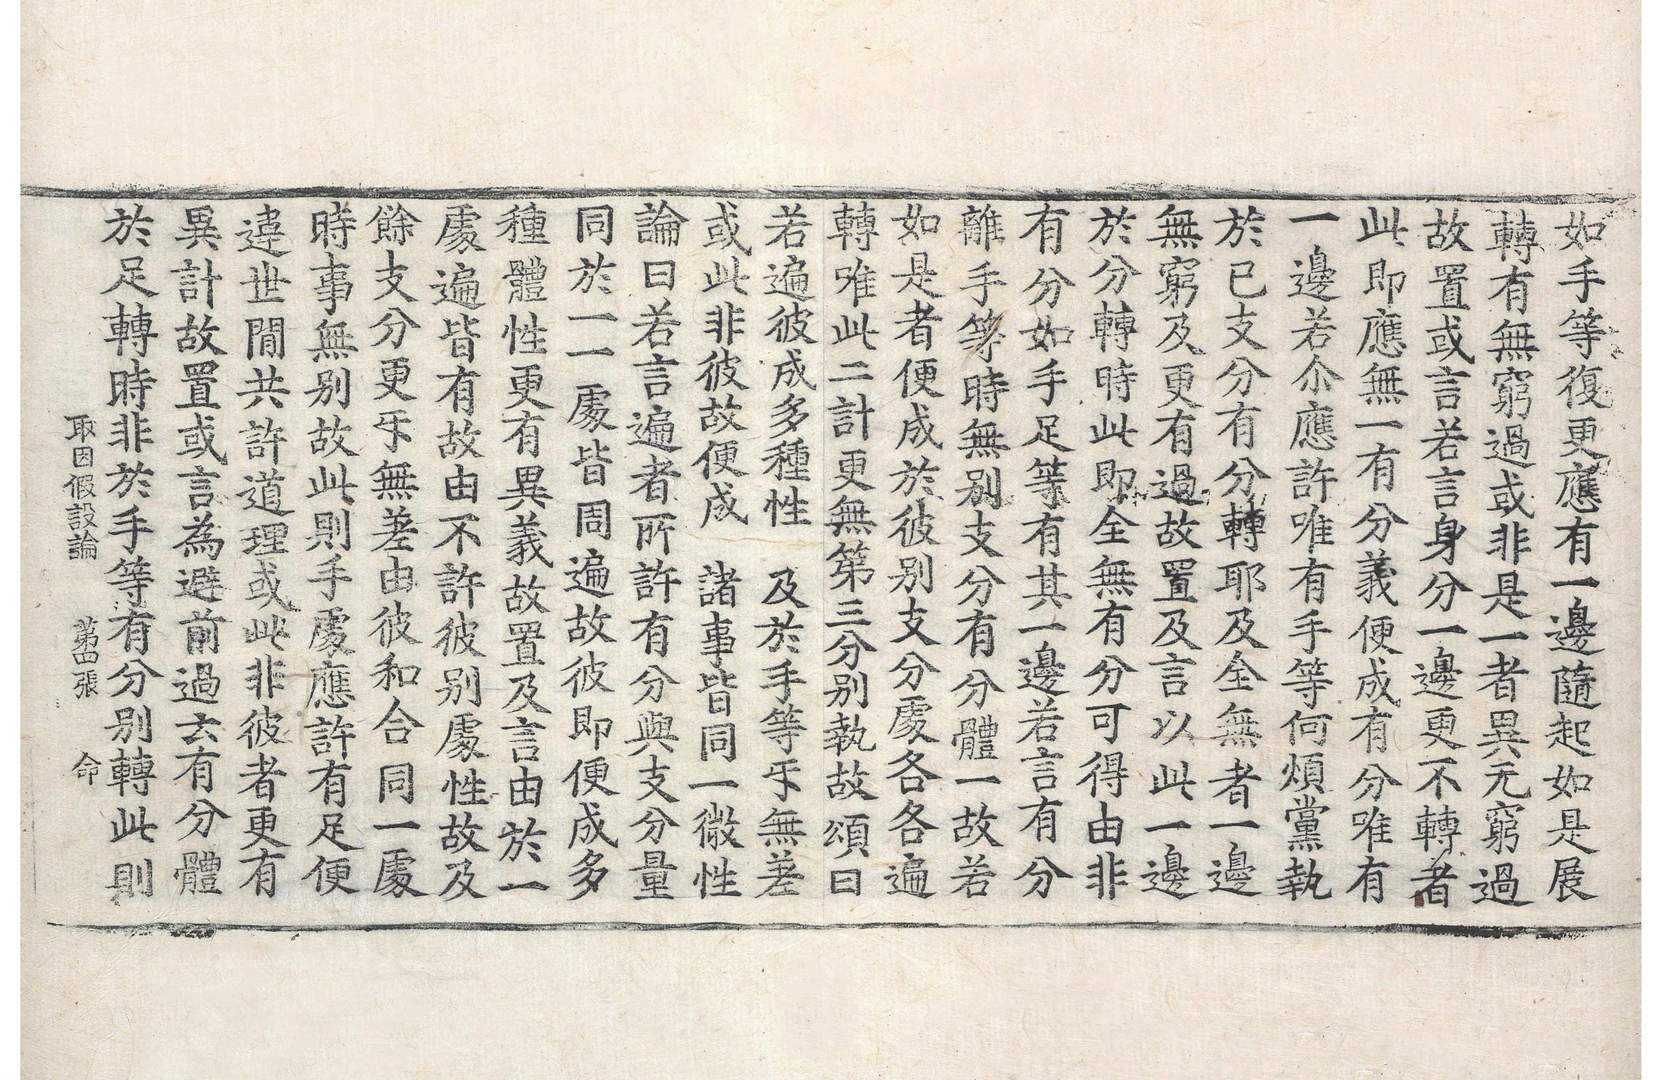 如手等復更應有一邊隨起如是展
轉有無窮過或非是一者異无窮過
故置或言若言身分一邊更不轉者
此即應無一有分義便成有分唯有
一邊若尒應許唯有手等何煩黨執
於已支分有分轉耶及全無者一邊
無窮及更有過故置及言以此一邊
於分轉時此即全無有分可得由非
有分如手足等有其一邊若言有分
離手等時無別支分有分體一故若
如是者便成於彼別支分處各各遍
轉唯此二計更無第三分別執故頌曰
若遍彼成多種性　及於手等乎無差
或此非彼故便成　諸事皆同一微性
論曰若言遍者所許有分與支分量
同於一一處皆周遍故彼即便成多
種體性更有異義故置及言由於一
處遍皆有故由不許彼別處性故及
餘支分更乎無差由彼和合同一處
時事無別故此則手處應許有足便
違世閒共許道理或此非彼者更有
異計故置或言為避前過云有分體
於足轉時非於手等有分別轉此則
取因假設論　第四張　命